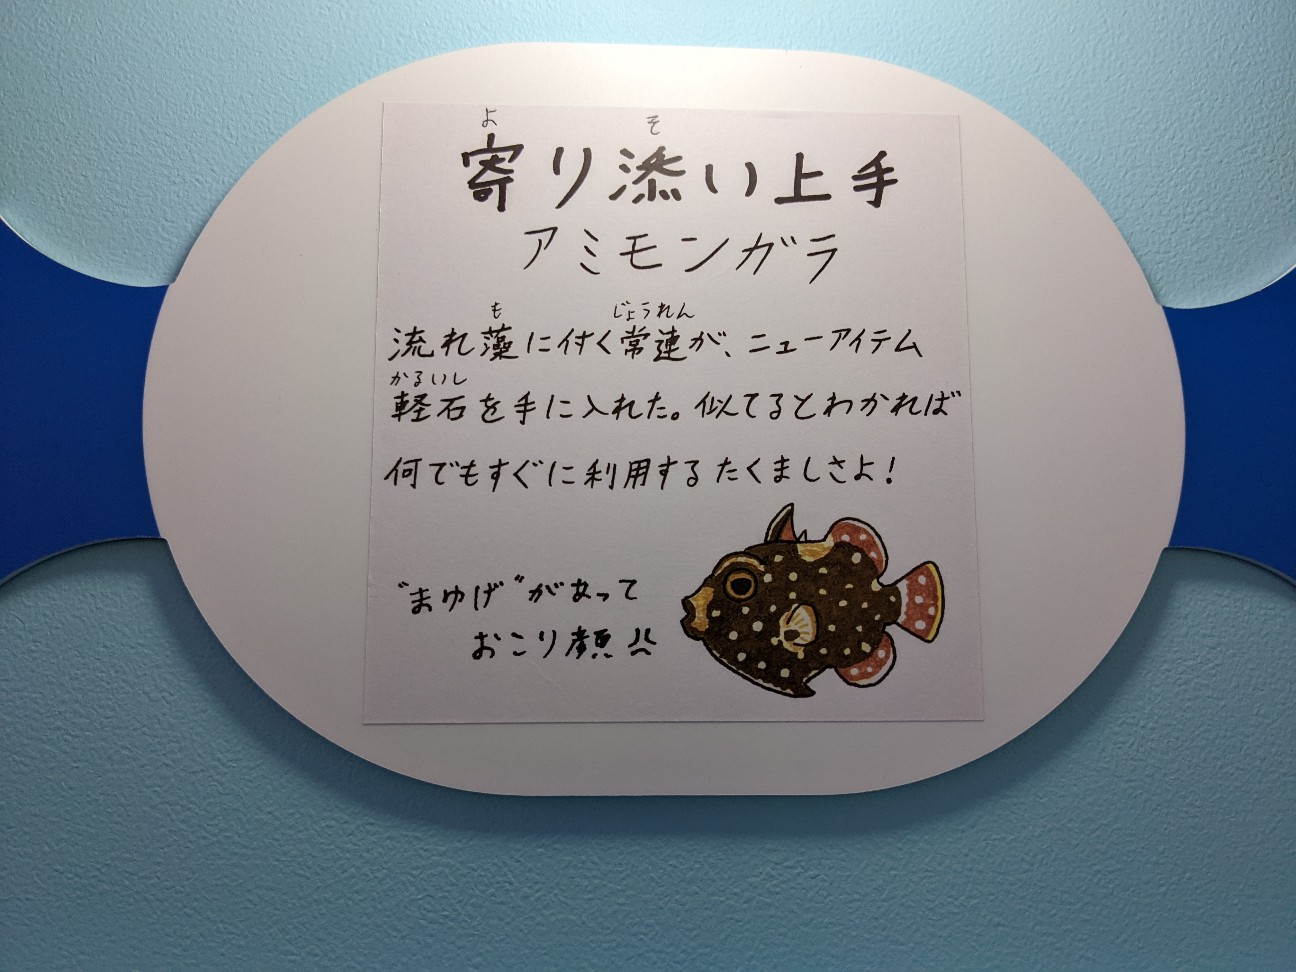 よ そ
寄り添い上手
アミモンガラ
も じょうれん
流れ藻に付く常連が、ニューアイテム
かるいし
軽石を手に入れた。似てるとわかれば
何でもすぐに利用するたくましさよ!
"まゆげ"があって
おこり顔